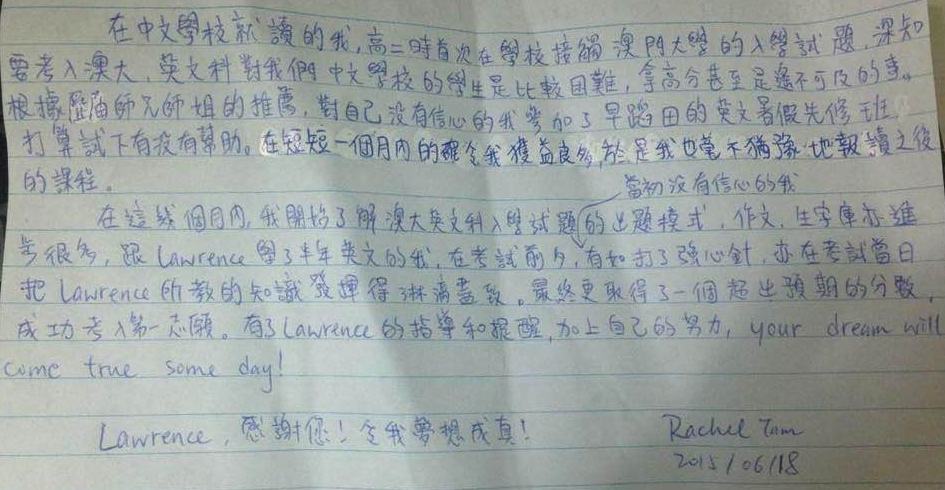 在中文學校就讀的我,高二時首次在學校接觸澳門大學的入學試題,深知
要考入澳大,英文科對我們中文學校的學生是比較困難,拿高分甚至是遙不可及的事。
根據歷屆師兄師姐的推薦,對自己没有信心的我參加了早稻田的英文暑假先修班,
打算試下有没有幫助。在短短一個月内的確令我獲益良多,於是我也毫不猶豫地報讀之後
的課程。
當初没有信心的我
在這幾個月内,我開始了解澳大英文科入學試題的出題模式,作文,生字庫亦進
步很多,跟Lawrence學了半年英文的我,在考試前夕,有如打了強心針,亦在考試當日
把Lawrence所教的知識發揮得淋漓盡致。最終更取得了一個超出預期的分數,
成功考入第一志願。有了Lawrence的指導和提醒,加上自己的努力, your dream will
come true some day!
Lawrence,感謝您!令我夢想成真!
Rachel Tam
2015/06/18